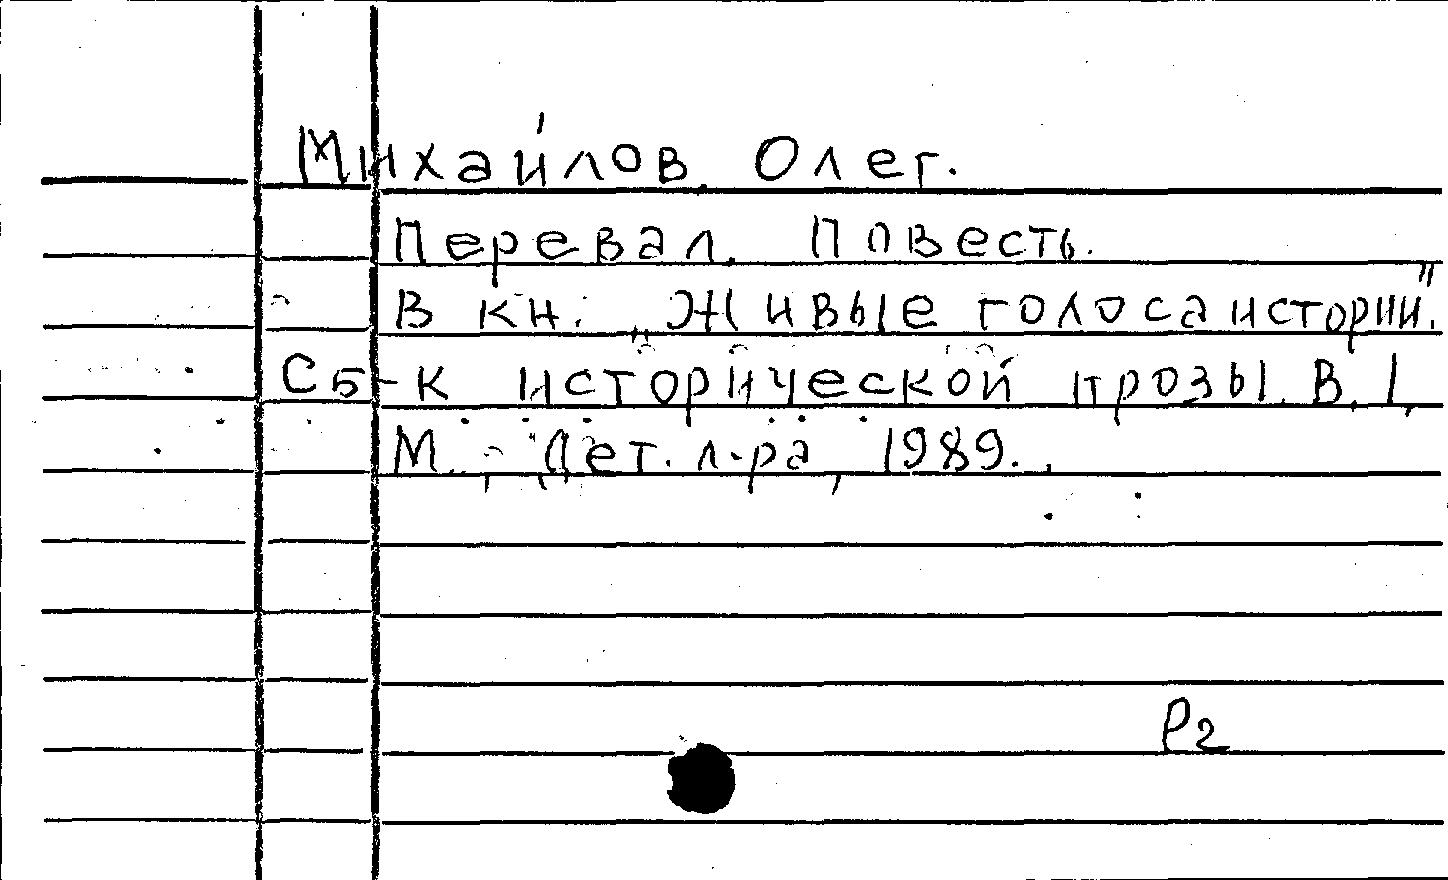 Миха́йлов, Олег.
Перевал. Повесть.
В кн.: „Живые голоса истории".
Сб-к исторической прозы. В. 1,
М., „Дет. л-ра, 1989.
Р2